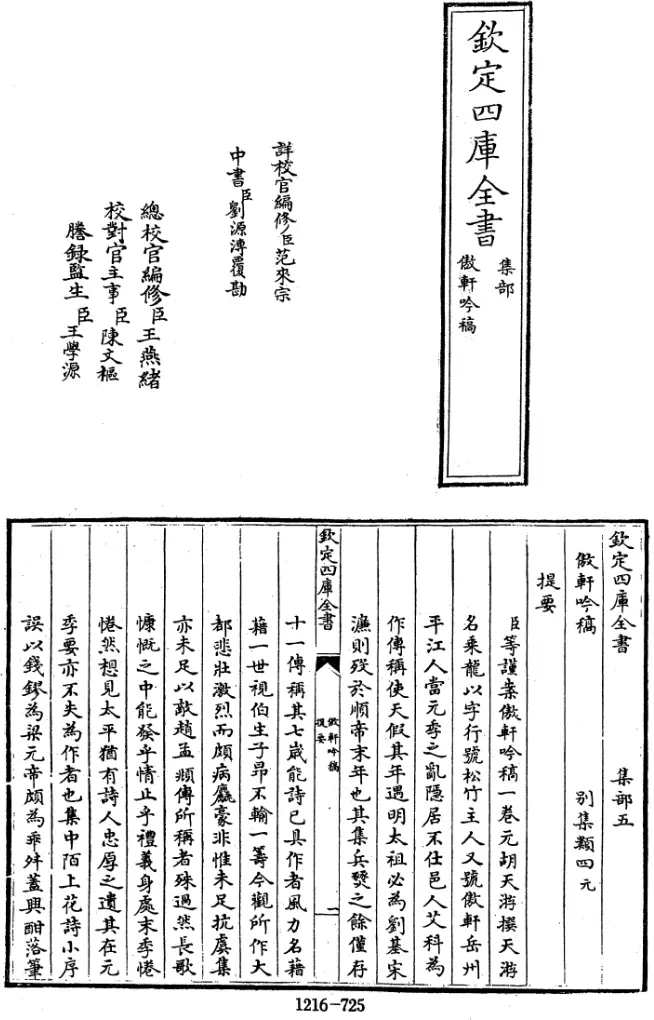 欽定四庫全書
集部
傲軒吟稿
詳校官編修臣范來宗
中書臣劉源溥覆勘
總校官編修臣王燕緒
校對官主事臣陳文樞
謄錄監生臣王學源
欽定四庫全書 集部五
傲軒吟稿 別集類四元
提要
臣等謹案傲軒吟稿一卷元胡天游撰天游
名乘龍以字行號松竹主人又號傲軒岳州
平江人當元季之亂隱居不仕邑人艾科為
作傳稱使天假其年遇明太祖必為劉基宋
濂則歿於順帝末年也其集兵燹之餘僅存
欽定四庫全書
傲軒吟稿
提要
一
十一傳稱其七歲能詩已具作者風力名藉
藉一世視伯生子昂不輸一籌今觀所作大
都悲壯激烈而頗病麤豪非惟未足抗虞集
亦未足以敵趙孟頫傳所稱者殊過然長歌
慷慨之中能發乎情止乎禮義身處末季惓
惓然想見太平猶有詩人忠厚之遺其在元
季要亦不失為作者也集中陌上花詩小序
誤以錢鏐為梁元帝頗為乖舛蓋興酣落筆
1216-725